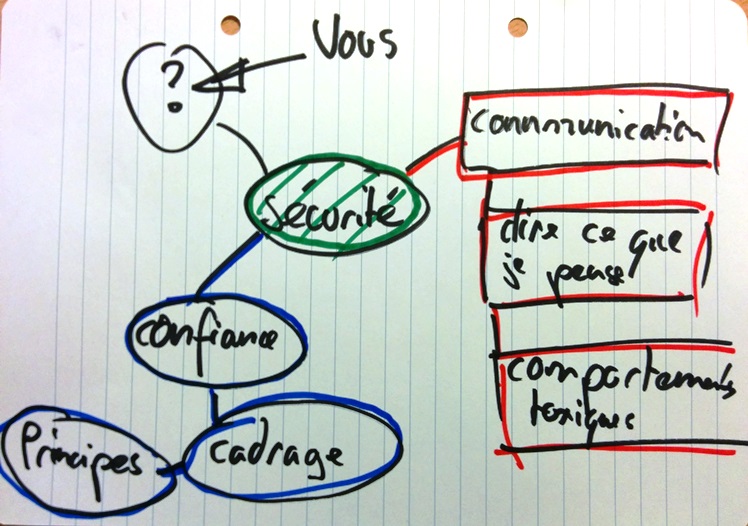 Vous
?
communication
sécurité
dire ce que
je pense
confiance
comportements
toxiques
Principes
cadrage